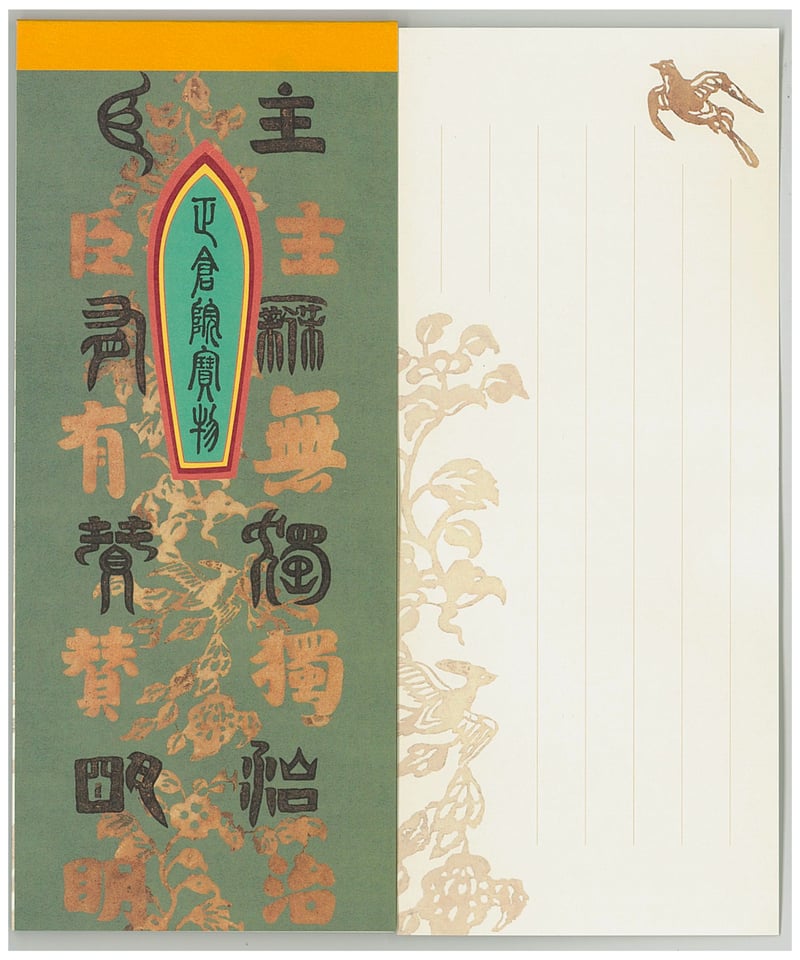 主主無無獨獨治治
正倉院寶物
臣臣有有賛賛明明